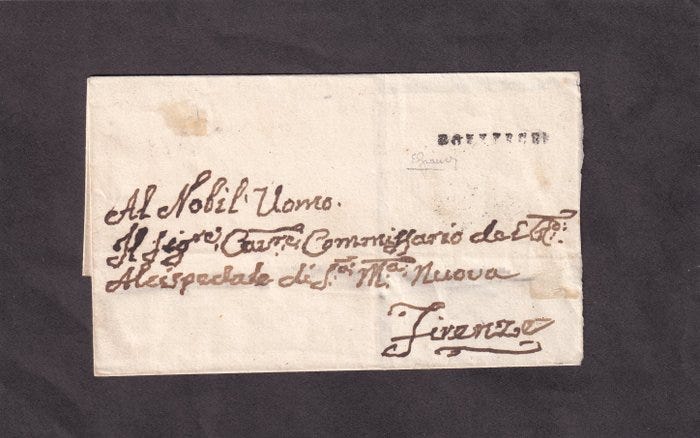 Al Nobil' Uomo.
Il Sig:re Cav:re Commissario de
Alcispedale di S:a M:a Nuova
Firenze